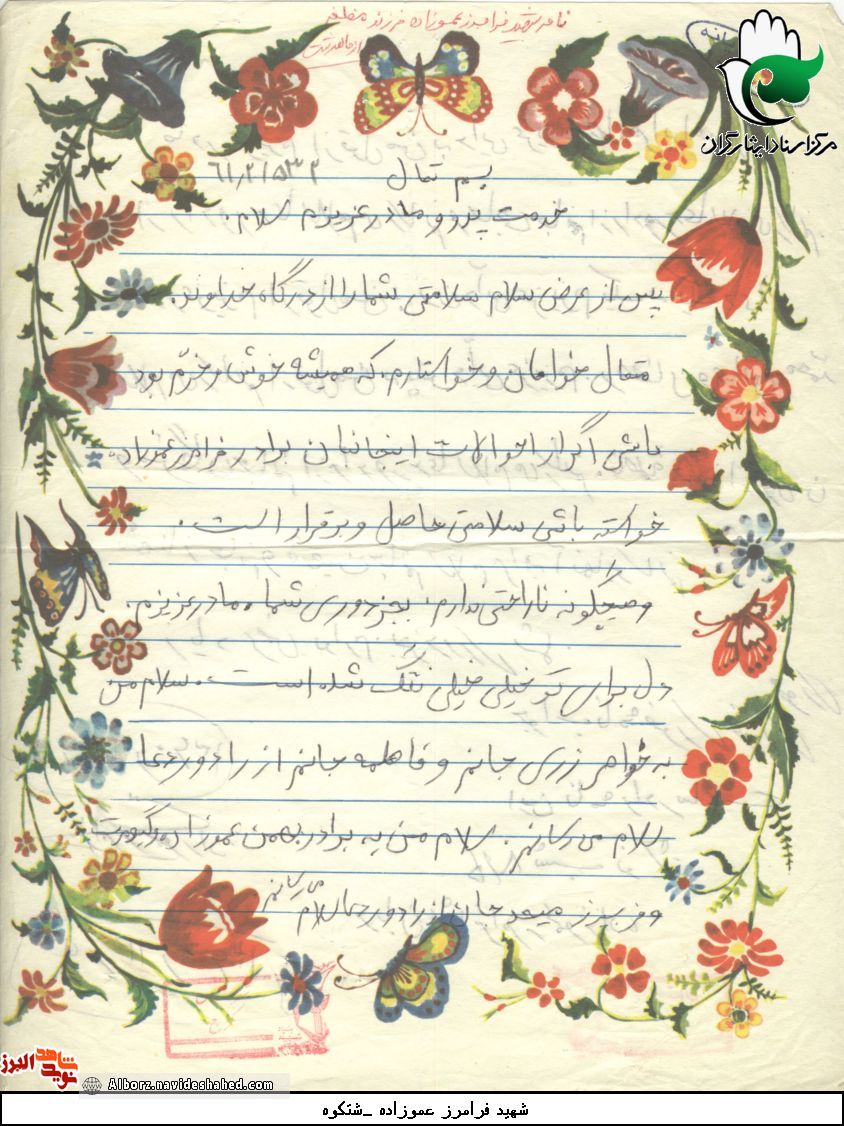 نامه شهید فرامرز عموزاده فرزند مظفر
مرکز اسناد ایثارگران
بسم تعالی
خدمت پدر و مادر عزیزم سلام.
پس از عرض سلام سلامتی شما را از درگاه خداوند.
متعال خواهان و خواستارم. که همیشه خوش و خرّم بود
باشی اگر از احوالات اینجانبان برادر فرامرز عموزاده
خواسته باشی سلامتی حاصل و برقرار است.
و هیچگونه ناراحتی ندارم. بجز دوری شما. مادر عزیزم.
دل برای تو خیلی خیلی تنگ شده است. سلام من
به خواهر زری جانم و فاطمه جانم از راه دور دعا
سلام می رسانم. سلام من به برادر بهمن عموزاده و کیومرث
و فریبرز جان از راه دور سلام می رسانم
نوید شاهد البرز
Alborz.navideshahed.com
شهید فرامرز عموزاده _شتکوه